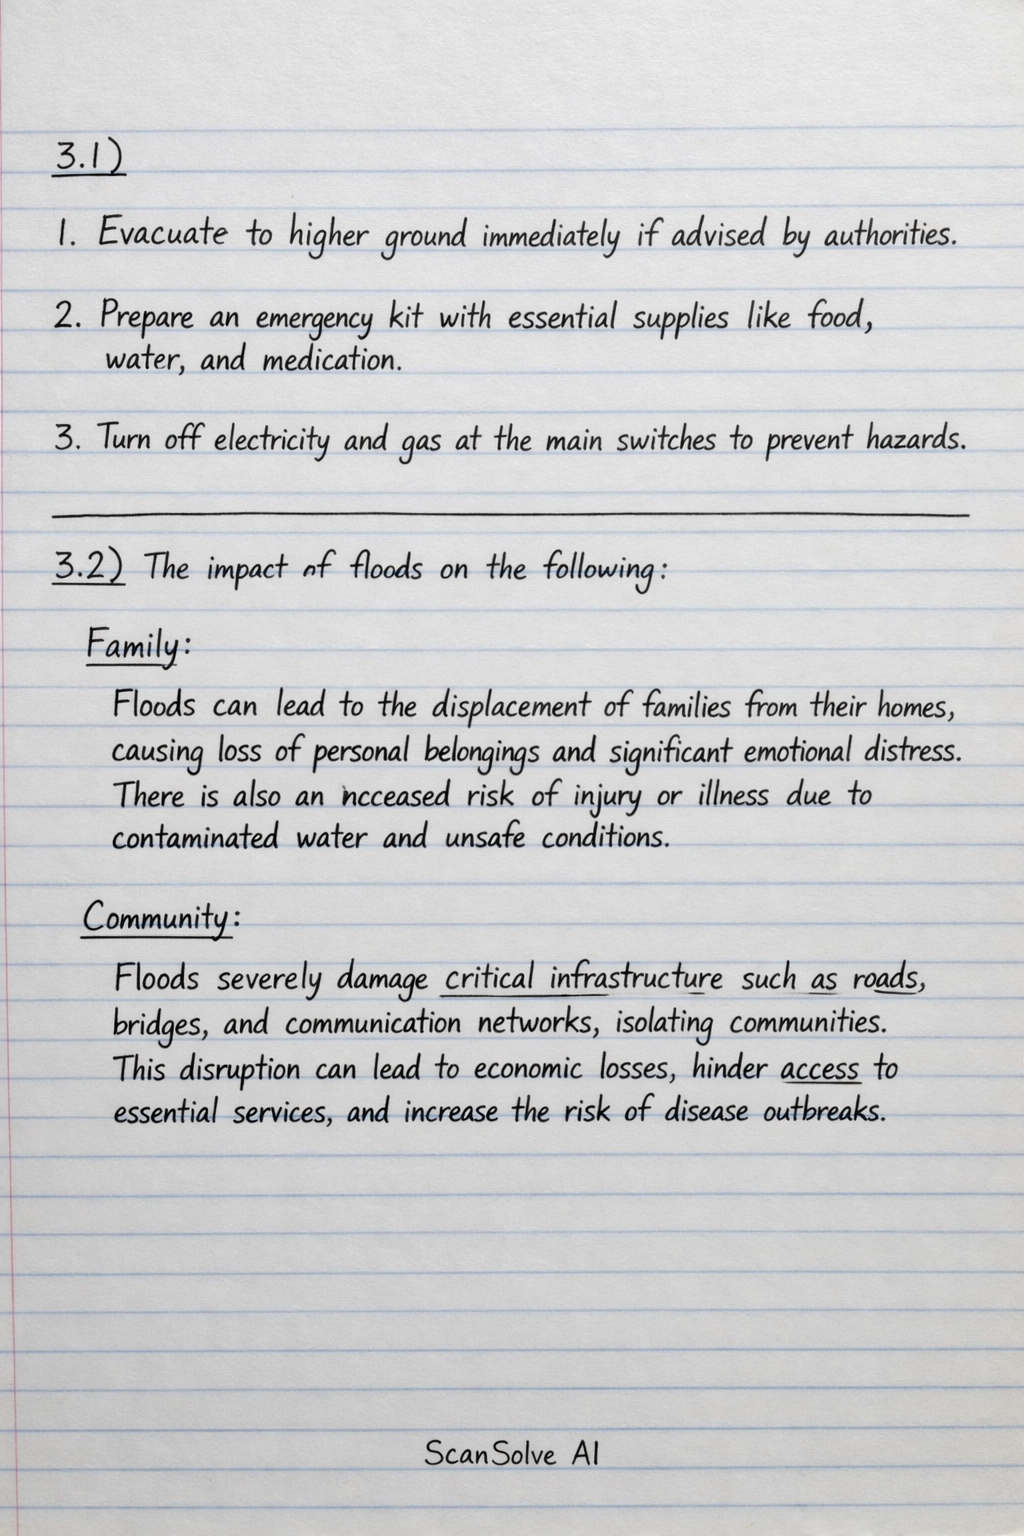 3.1)
1. Evacuate to higher ground immediately if advised by authorities.
2. Prepare an emergency kit with essential supplies like food,
water, and medication.
3. Turn off electricity and gas at the main switches to prevent hazards.
3.2) The impact of floods on the following:
Family:
Floods can lead to the displacement of families from their homes,
causing loss of personal belongings and significant emotional distress.
There is also an incceased risk of injury or illness due to
contaminated water and unsafe conditions.
Community:
Floods severely damage critical infrastructure such as roads,
bridges, and communication networks, isolating communities.
This disruption can lead to economic losses, hinder access to
essential services, and increase the risk of disease outbreaks.
ScanSolve AI